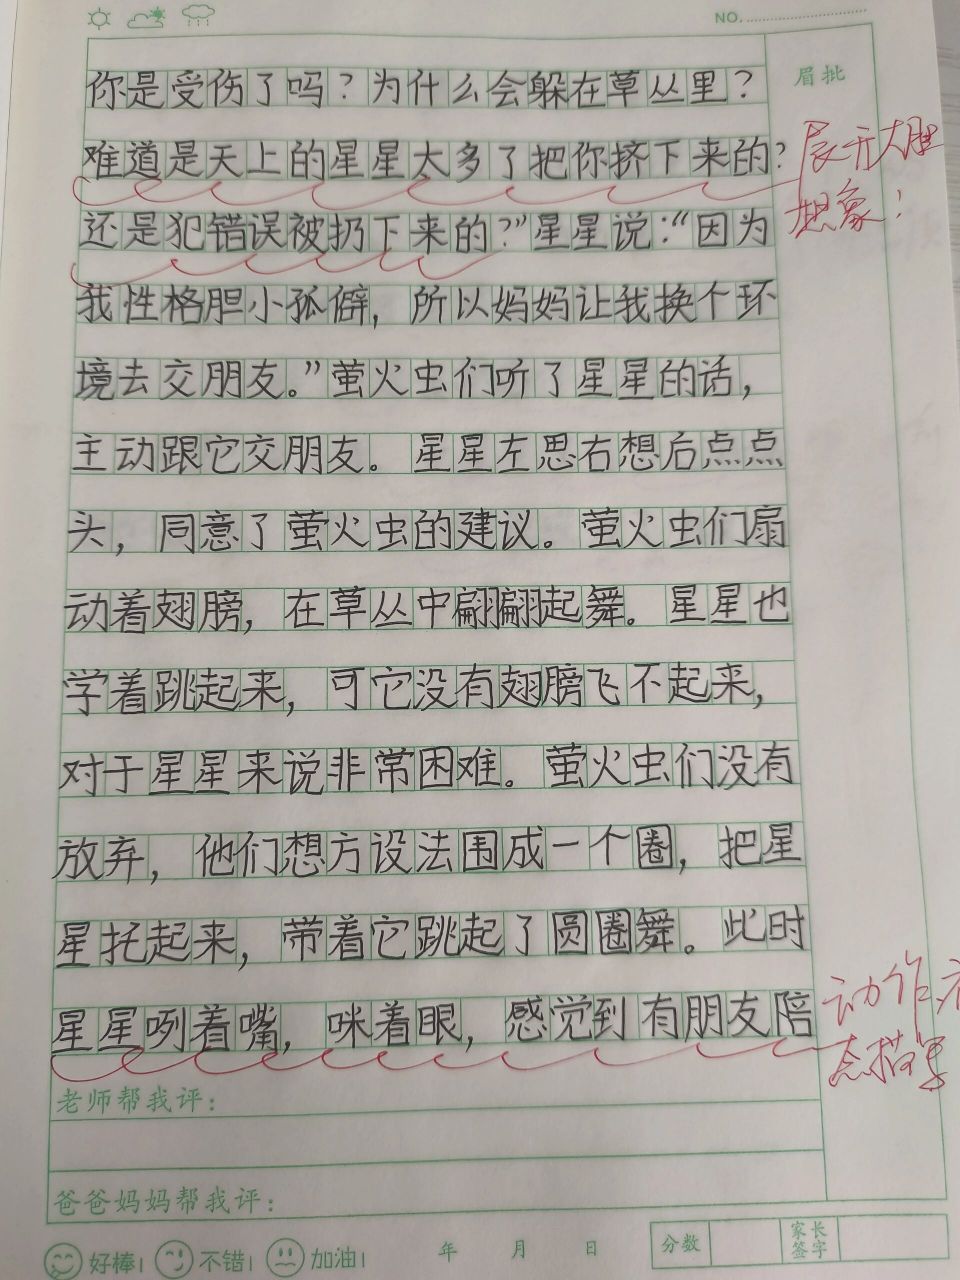 NO.
眉批
你是受伤了吗？为什么会躲在草丛里？
难道是天上的星星太多了把你挤下来的？
展开大胆
想象！
还是犯错误被扔下来的？”星星说：“因为
我性格胆小孤僻，所以妈妈让我换个环
境去交朋友。”萤火虫们听了星星的话，
主动跟它交朋友。星星左思右想后点点
头，同意了萤火虫的建议。萤火虫们扇
动着翅膀，在草丛中翩翩起舞。星星也
学着跳起来，可它没有翅膀飞不起来，
对于星星来说非常困难。萤火虫们没有
放弃，他们想方设法围成一个圈，把星
星托起来，带着它跳起了圆圈舞。此时
星星咧着嘴，咪着眼，感觉到有朋友陪
动作
态描写
老师帮我评：
爸爸妈妈帮我评：
好棒！ 不错！ 加油！ 年 月 日 分数 家长签字